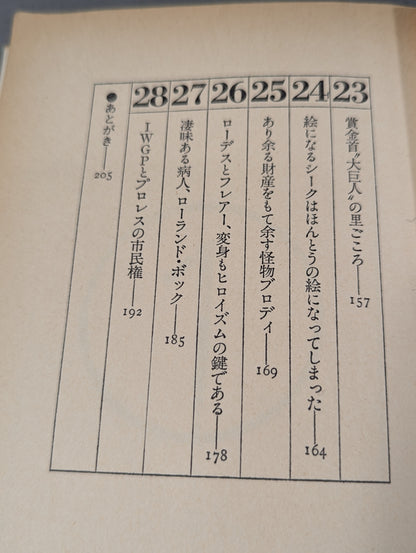 23 賞金首〝大巨人〟の里ごころ——157
24 絵になるシークはほんとうの絵になってしまった——164
25 あり余る財産をもて余す怪物ブロディ——169
26 ローデスとフレアー、変身もヒロイズムの鍵である——178
27 凄味ある病人、ローランド・ボック——185
28 IWGPとプロレスの市民権——192
●あとがき——205